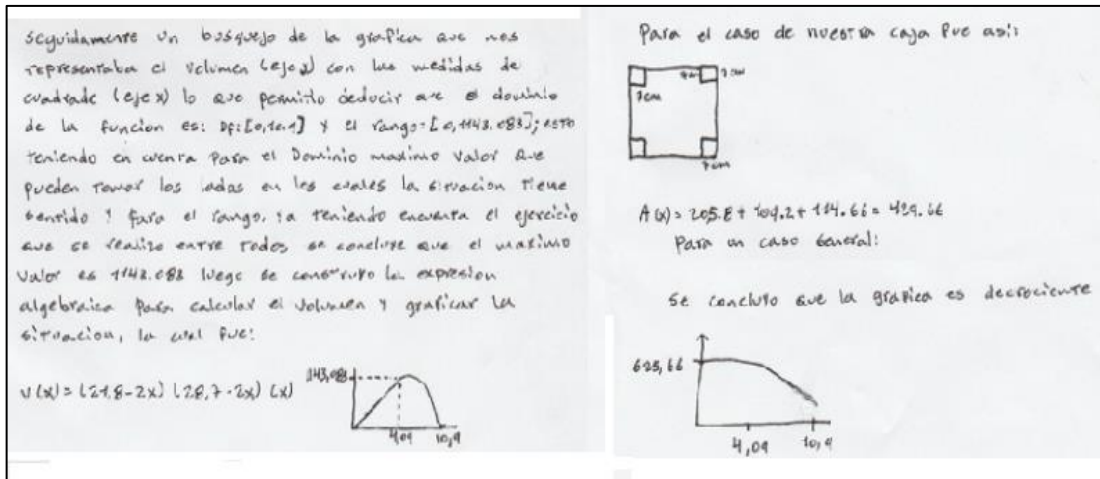 seguidamente un bosquejo de la grafica que nos
representaba el volumen (eje y) con las medidas de
cuadrado (eje x) lo que permitio deducir que el dominio
de la funcion es: Df: [0,10.9] y el rango= [0,1143.083]; esto
teniendo en cuenta para el Dominio maximo valor que
pueden tomar los lados en los cuales la situacion tiene
sentido y para el rango, ya teniendo encuenta el ejercicio
que se realizo entre todos se concluye que el maximo
valor es 1143.083 luego se construyo la expresion
algebraica para calcular el volumen y graficar la
situacion, la cual fue:
V(x) = (21,8-2x) (28,7-2x) (x)
1143,083
4,09 10,9
Para el caso de nuestra caja fue asi:
7cm 7cm
7cm
7cm
A(x) = 205.8 + 109.2 + 114.66 = 429.66
Para un caso General:
Se concluyo que la grafica es decreciente
625,66
4,09 10,9